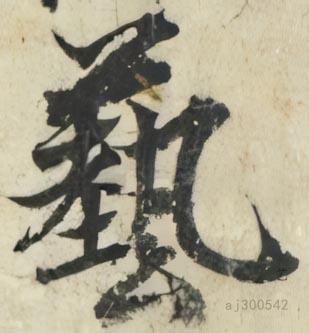 藝
aj300542